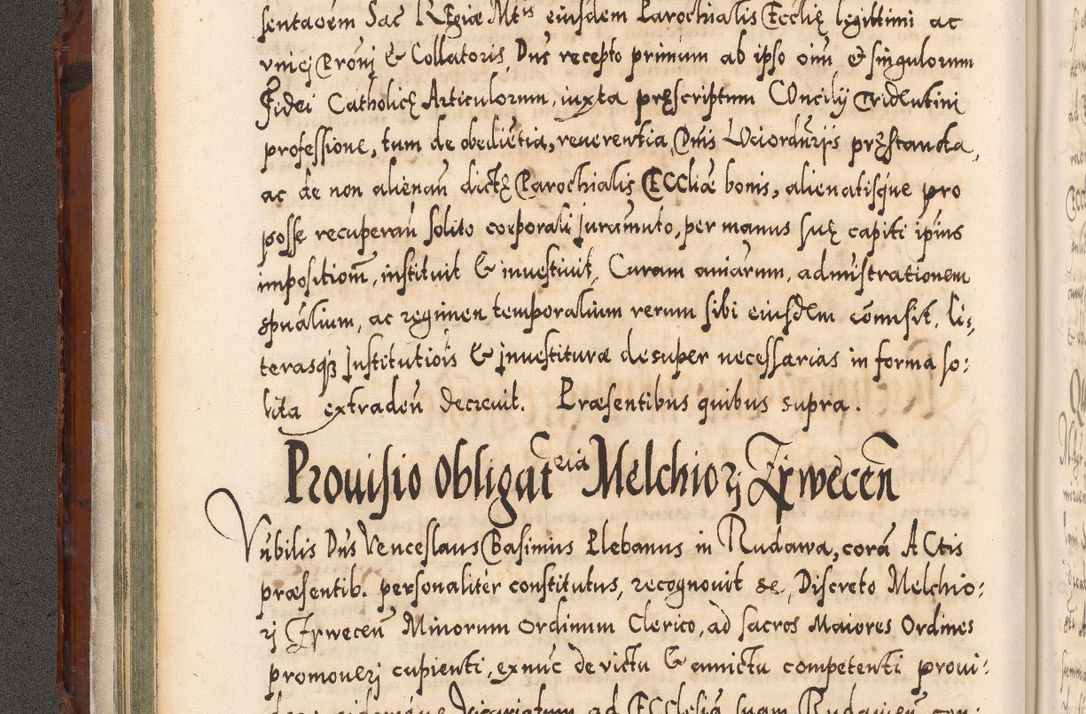 sentaōem Sac Regiæ Mtis eiusdem Parochialis Ecclię legittimi ac
vnicj Pronj & Collatoris Dns recepto primum ab ipso oīm & singulorum
Fidei Catholicę Articulorum, iuxta pręscriptum COncilij Tridentini
professione, tum de obediētia, reuerentia Dnis Loci Ordūrijs pręstanda,
ac de non alienan̄ dictę Parochialis ECCliæ bonis, alienatisque pro
posse recuperan̄ solito corporali juramento, per manus suę capiti ipius
impositionem, instituit & inuestiuit, Curam aniarum, administrationem
spualium, ac regimen temporalium rerum sibi eiusdem comisit, li-
terasq3 Institutiois & inuestituræ desuper necessarias in forma so:
lita extraden̄ decreuit. Præsentibus quibus supra.
Prouisio Obligatria Melchiorj Zywecen̄
Vnbilis Dns Venceslaus Basimius Plebanus in Rudawa, corā ACtis
præsentib. personaliter constitutus, recognouit &c, Discreto Melchio:
rj Zywecen̄ Minorum Ordinum Clerico, ad sacros Maiores Ordines
promouerj cupienti, ex nūc de victu & amictu competenti proui:
Vicariatum ad ECClesiā suam Rudauien̄